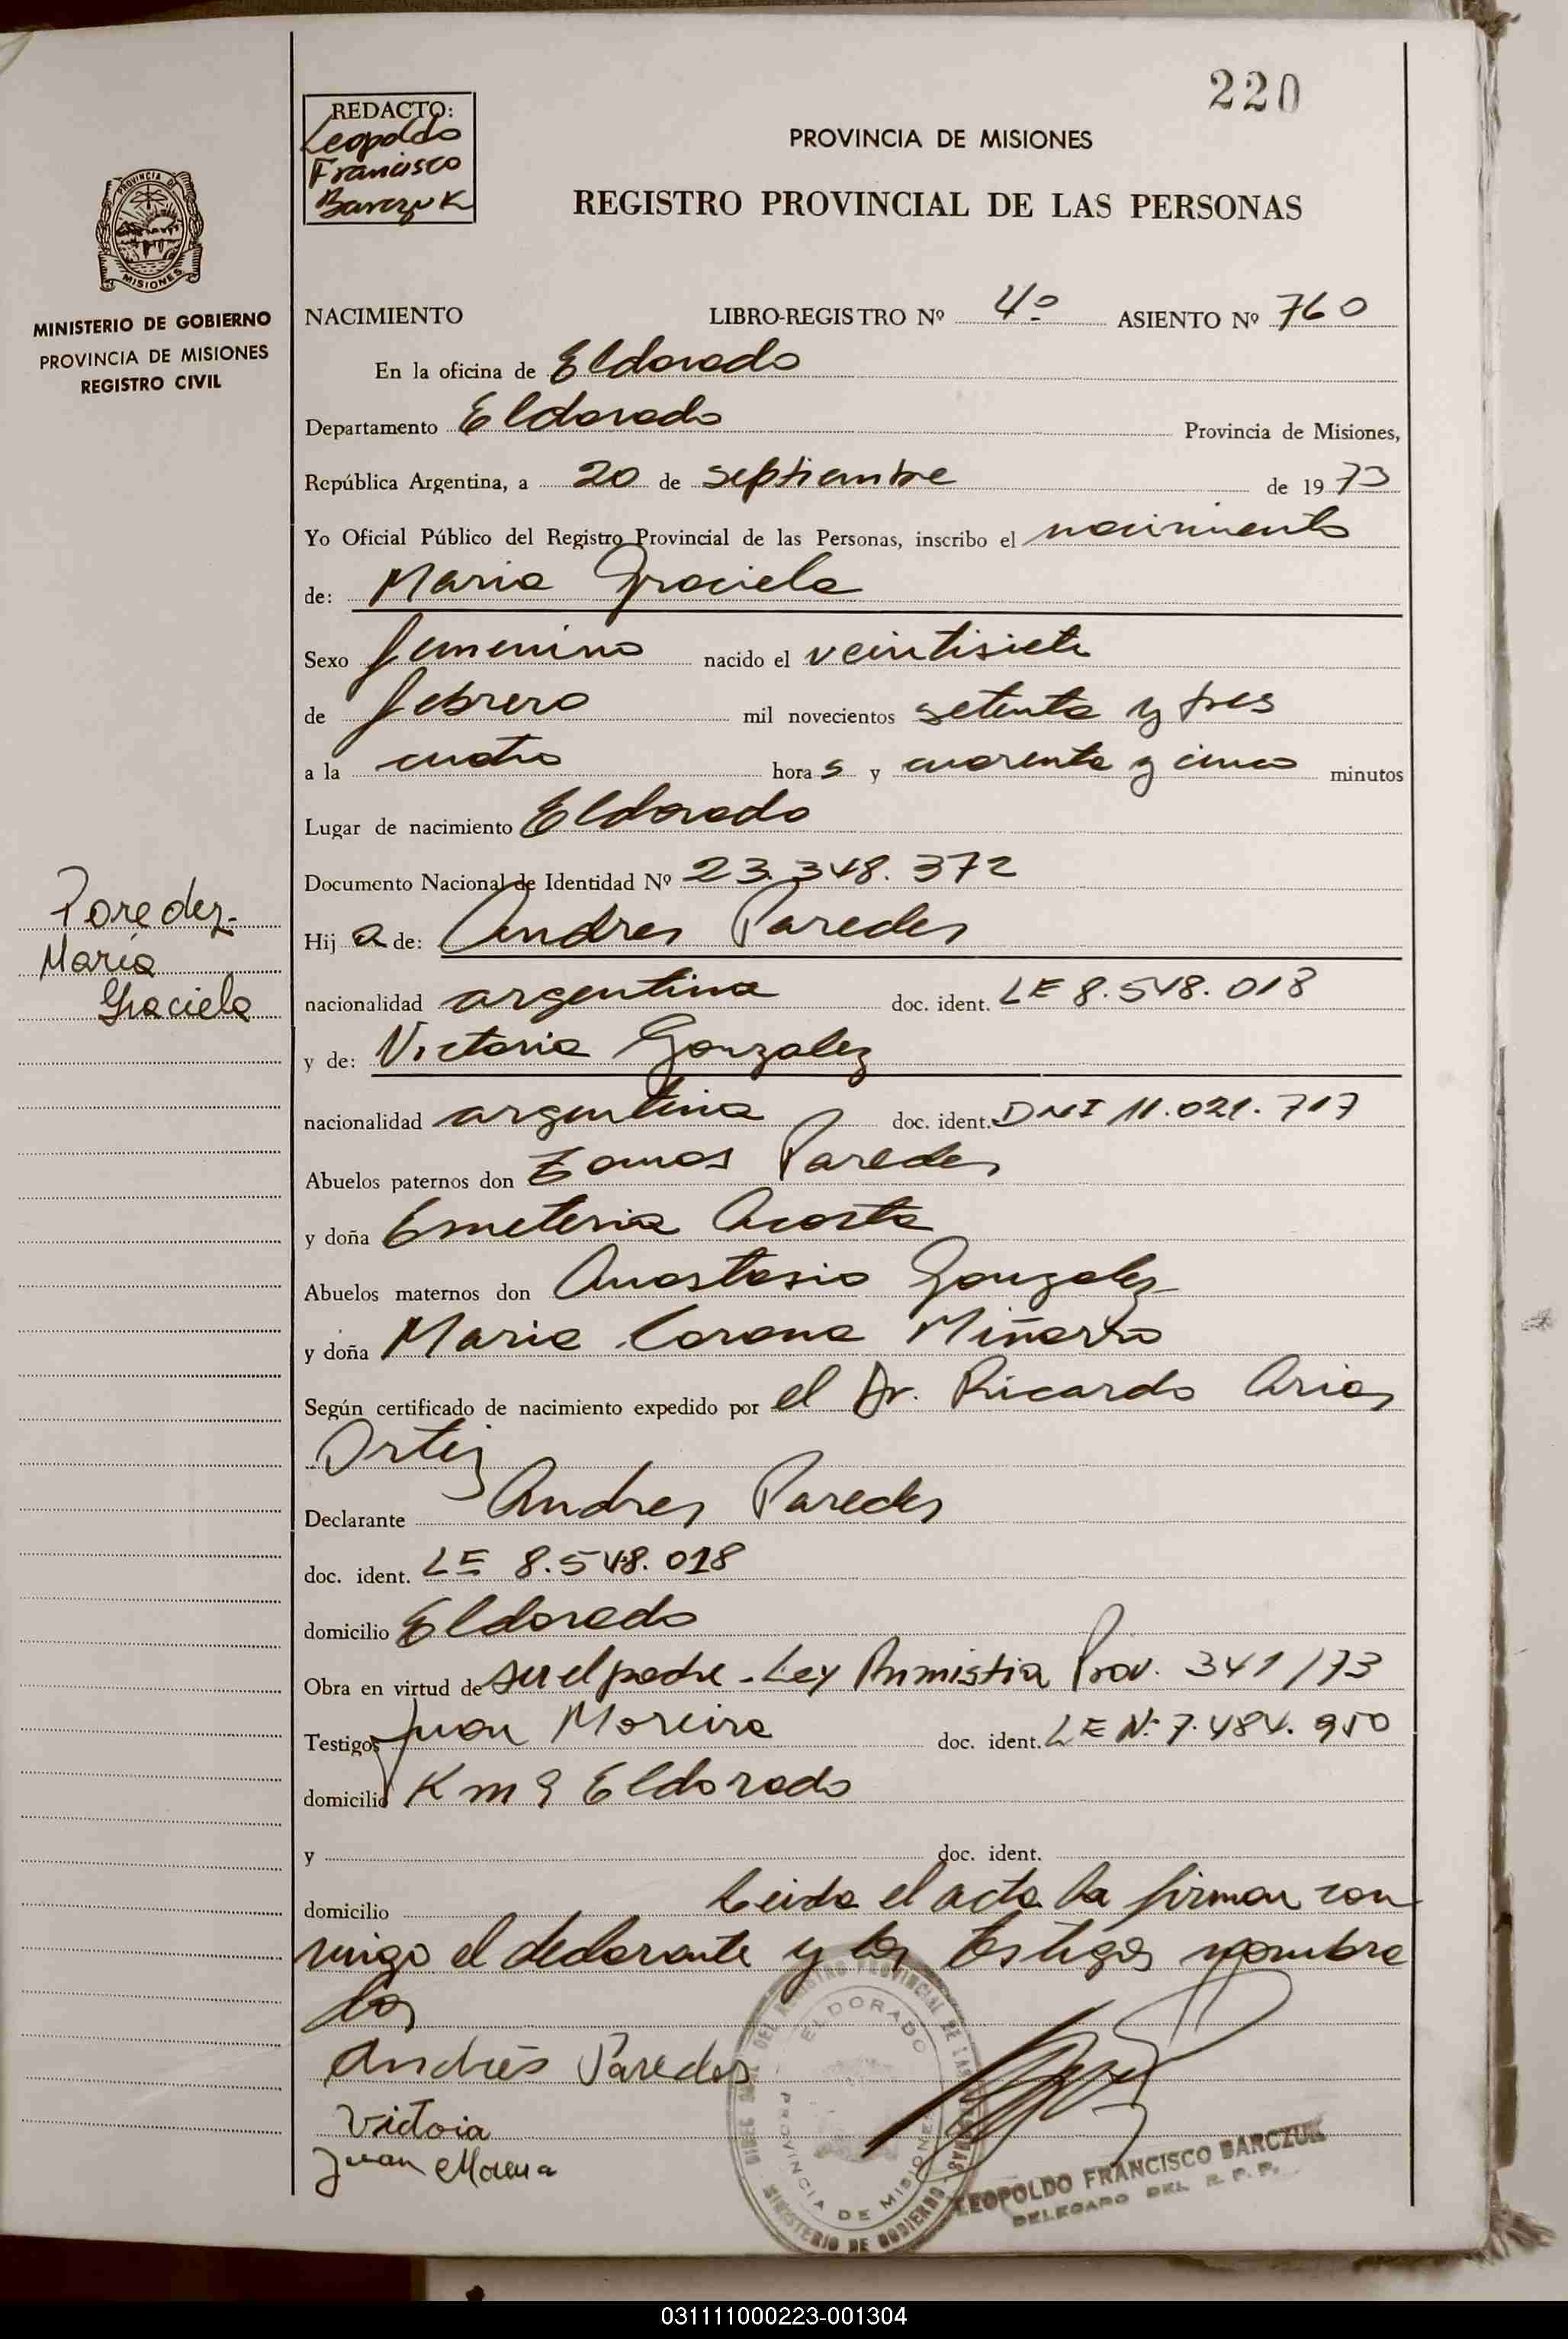 220
REDACTO:
Leopoldo
Francisco
Barczuk
PROVINCIA DE MISIONES
REGISTRO PROVINCIAL DE LAS PERSONAS
PROVINCIA DE
MISIONES
MINISTERIO DE GOBIERNO
PROVINCIA DE MISIONES
REGISTRO CIVIL
NACIMIENTO LIBRO-REGISTRO Nº 4º ASIENTO Nº 760
En la oficina de Eldorado
Departamento Eldorado Provincia de Misiones,
República Argentina, a 20 de septiembre de 1973
Yo Oficial Público del Registro Provincial de las Personas, inscribo el nacimiento
de: Maria Graciela
Sexo femenino nacido el veintisiete
de febrero mil novecientos setenta y tres
a la cuatro horas y cuarenta y cinco minutos
Lugar de nacimiento Eldorado
Documento Nacional de Identidad Nº 23.348.372
Hija de: Andres Paredes
Paredez-
María
Graciela
nacionalidad argentina doc. ident. LE 8.548.018
y de: Victoria Gonzalez
nacionalidad argentina doc. ident. DNI 11.021.717
Abuelos paternos don Paredes
y doña Emeteria Acosta
Abuelos maternos don Anastasio Gonzalez
y doña Maria Corona Miñarro
Según certificado de nacimiento expedido por el Dr. Ricardo Arias
Ortiz
Declarante Andres Paredes
doc. ident. LE 8.548.018
domicilio Eldorado
Obra en virtud de ser el padre - Ley Amnistia Prov. 341/73
Testigos Juan Moreira doc. ident. LE Nº 7.484.950
domicilio Km 9 Eldorado
y doc. ident.
domicilio Leida el acta la firman con
migo el declarante y los testigos nombra
dos
Andrés Paredes
Victoia
Juan Moreira
DEL REGISTRO PROVINCIAL DE LAS PERSONAS
MINISTERIO DE GOBIERNO
ELDORADO
PROVINCIA DE MISIONES
LEOPOLDO FRANCISCO BARCZUK
DELEGADO DEL R. P. P.
031111000223-001304